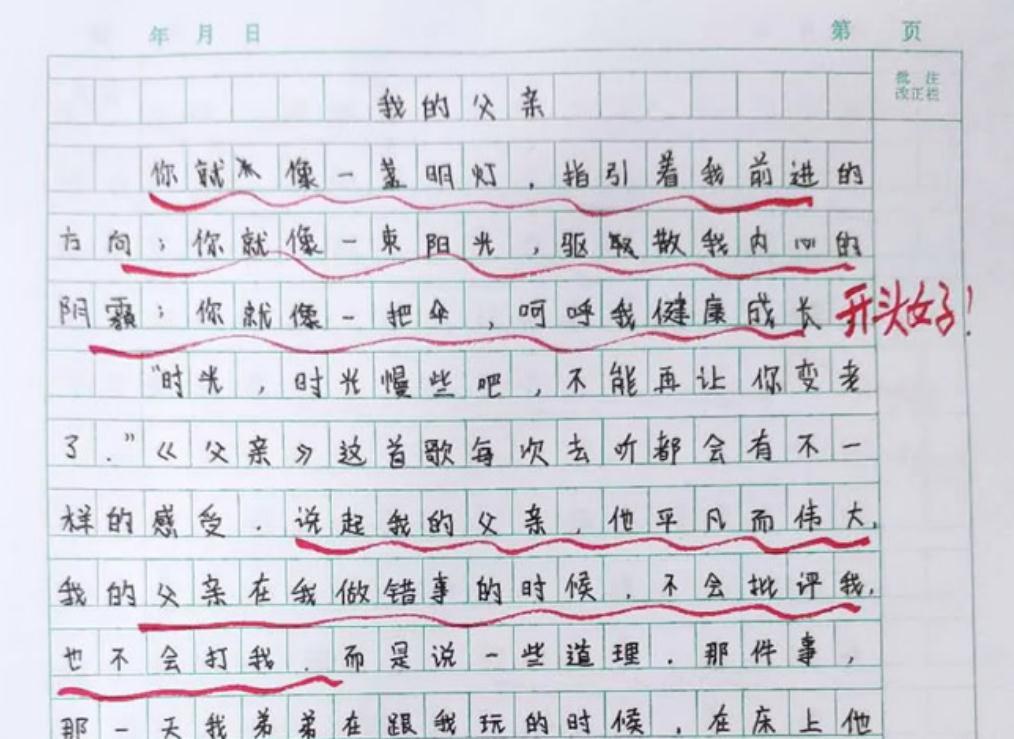 年 月 日 第 页
批 注
改正栏
我的父亲
你就像一盏明灯，指引着我前进的
方向；你就像一束阳光，驱散我内心的
阴霾；你就像一把伞，呵呼我健康成长
开头好！
“时光，时光慢些吧，不能再让你变老
了．”《父亲》这首歌每次去听都会有不一
样的感受．说起我的父亲，他平凡而伟大，
我的父亲在我做错事的时候，不会批评我，
也不会打我．而是说一些道理．那件事，
那一天我弟弟在跟我玩的时候，在床上他